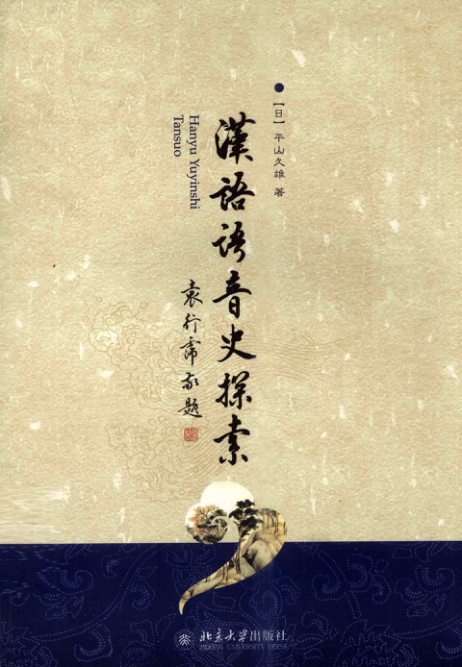 【日】平山久雄 著
漢語語音史探索
Hanyu Yuyinshi
Tansuo
袁行霈敬題
北京大学出版社